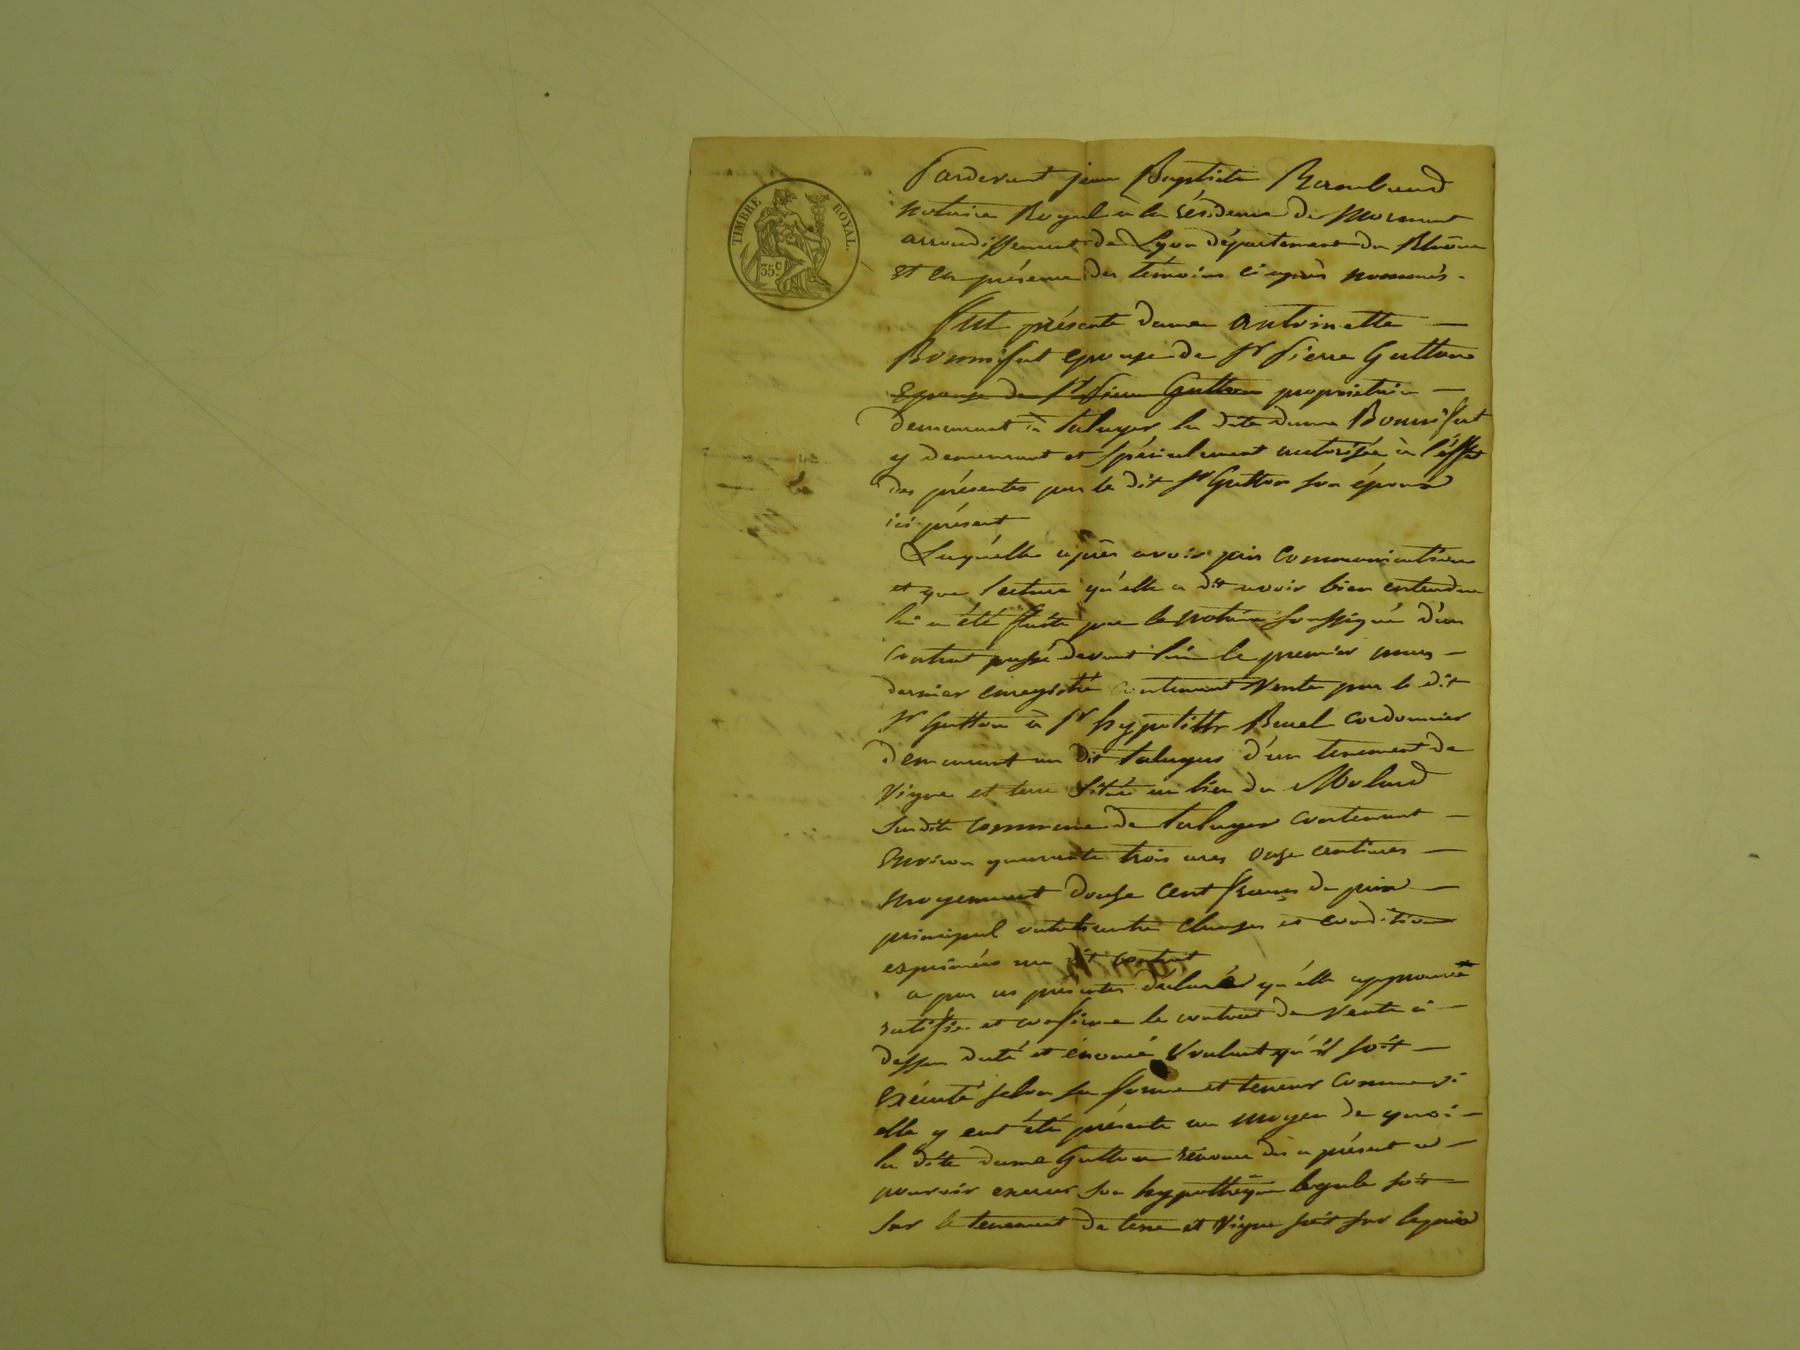 TIMBRE ROYAL.
35c
Pardevant jean Baptiste Rambaud
notaire Royal à la résidence de Mornant
arrondissement de Lyon département du Rhône
et en présence des témoins ci après nommés.
Fut présente dame antoinette
Bonnifat epouse de Sr pierre Gutton
epouse de Sr pierre Gutton propriétaire
demeurant à taluyer la dite dame Bonnifat
y demeurant et spécialement autorisée à l'éffet
des présentes par le dit Sr Gutton son époux
ici présent
Laquelle après avoir pris communication
et que lecture qu'elle a dit avoir bien entendue
lui a été faite par le notaire soussigné d'un
contrat passé devant lui le premier mars
dernier enregistré contenant Vente par le dit
Sr Gutton à Sr hyppolitte Buel cordonnier
demeurant au dit taluyer d'un tenement de
Vigne et terre situé au lieu du Molard
susdite commune de taluyer contenant
environ quarante trois ares onze centiares
moyennant douze cent francs de prix
principal outre charges et conditions
exprimées au dit contrat
a par ces présentes déclaré qu'elle approuve
ratifie et confirme le contrat de Vente ci
dessu daté et énoncé Voulant qu'il soit
exécuté selon sa forme et teneur comme si
elle y eut été présente au moyen de quoi
la dite dame Gutton renonce dès a présent a
pouvoir exercer son hypothèque legale soit
sur le tenement de terre et Vigne soit sur le prix